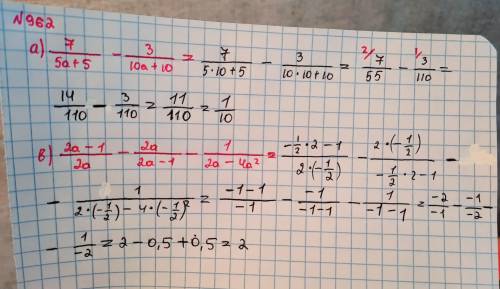 N962
а) 7/(5a+5) - 3/(10a+10) = 7/(5·10+5) - 3/(10·10+10) = 2/ 7/55 - 1/ 3/110 =
14/110 - 3/110 = 11/110 = 1/10
в) (2a-1)/2a - 2a/(2a-1) - 1/(2a-4a²) = (-1/2·2-1)/(2·(-1/2)) - (2·(-1/2))/(-1/2·2-1) -
- 1/(2·(-1/2)-4·(-1/2)²) = (-1-1)/-1 - -1/(-1-1) - 1/(-1-1) = -2/-1 - -1/-2 -
- 1/-2 = 2-0,5+0,5=2